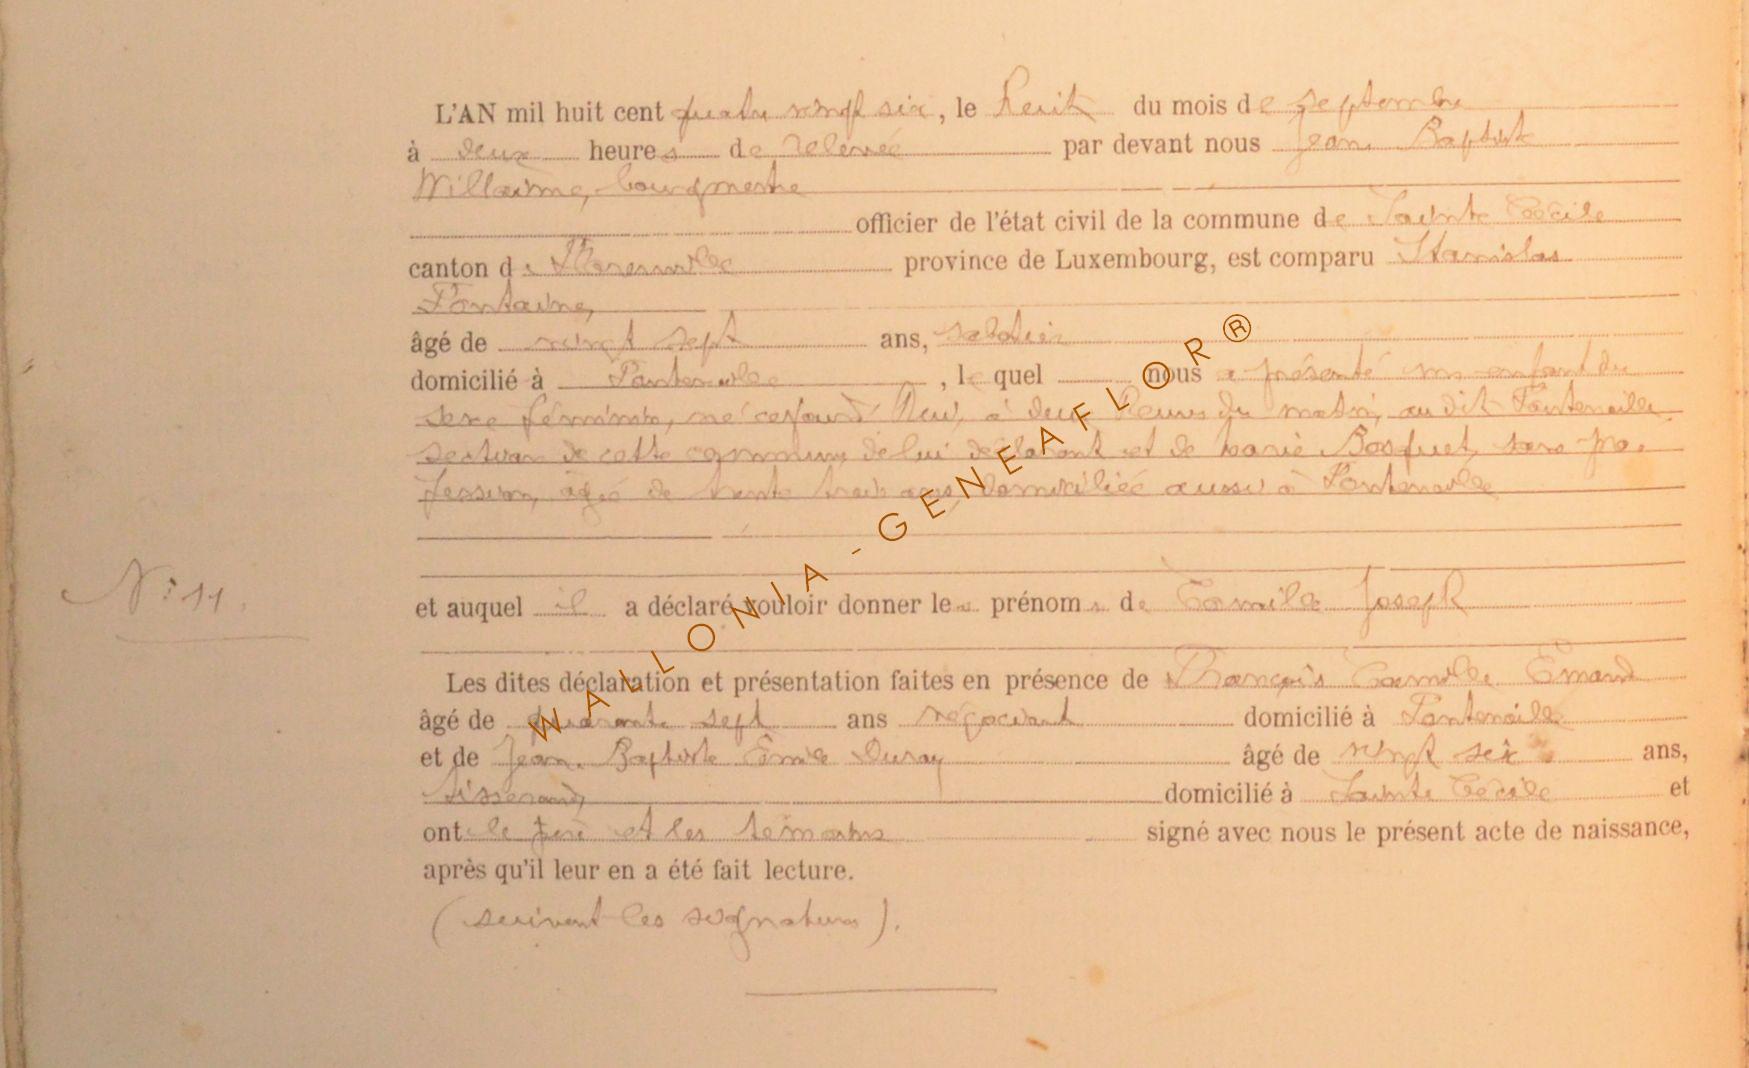 L'AN mil huit cent quatre vingt six, le huit du mois de septembre
à deux heures de relevée par devant nous Jean Baptiste
Willaime, bourgmestre
officier de l'état civil de la commune de Sainte Cécile
canton de Florenville province de Luxembourg, est comparu Stanislas
Fontaine,
âgé de vingt sept ans, sabotier
domicilié à Fontenoille, lequel nous a présenté un enfant du
sexe féminin, né cejourd'hui, à deux heures du matin, au dit Fontenoille
section de cette commune, de lui déclarant et de Marie Bosquet, sans pro-
fession, âgée de trente trois ans, domiciliée aussi à Fontenoille
N° 11.
et auquel il a déclaré vouloir donner les prénoms de Camille Joseph
Les dites déclaration et présentation faites en présence de François Camille Emard
âgé de quarante sept ans négociant domicilié à Fontenoille
et de Jean Baptiste Emile Duray âgé de vingt six ans,
tisserand, domicilié à Sainte Cécile et
ont le père et les témoins signé avec nous le présent acte de naissance,
après qu'il leur en a été fait lecture.
(suivent les signatures).
WALLONIA-GENEAFLOR®